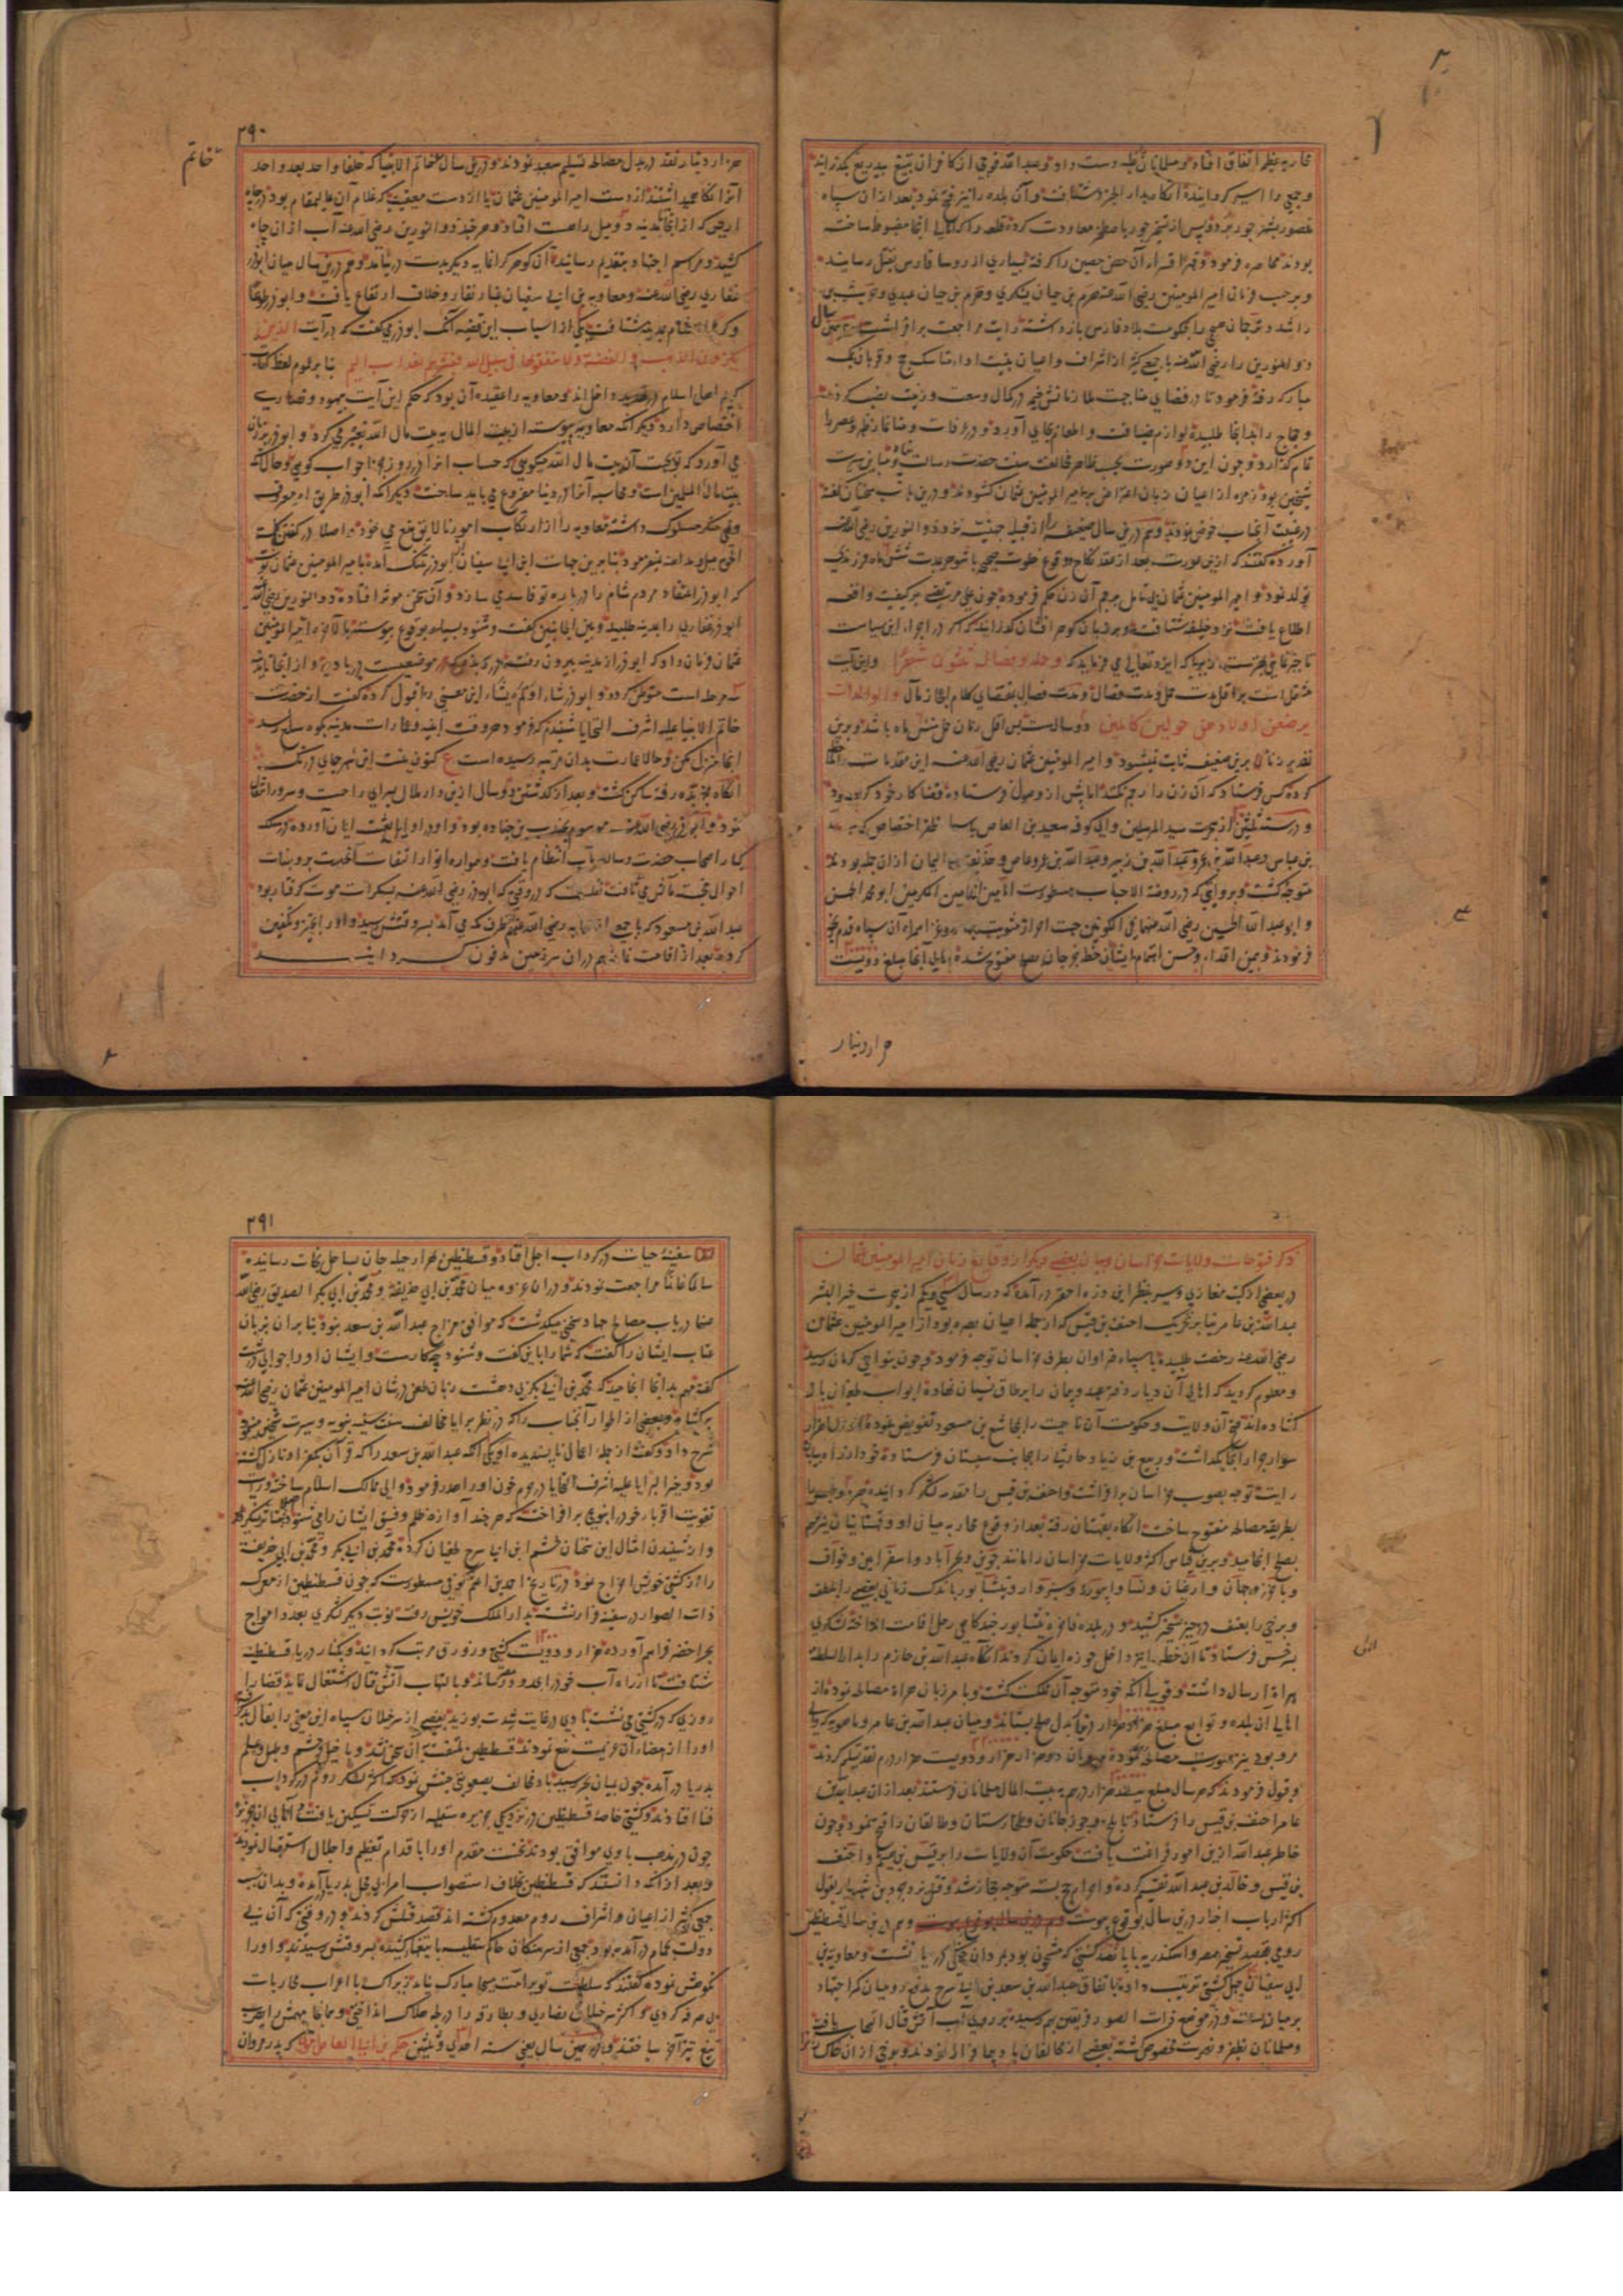 محاربه عظیم اتفاق افتاد و مسلمانان غلبه دست داد و عبدالله فوجی از کافران بتیغ بیدریغ بگذرانید
و جمعی را اسیر گردانیده آنگاه بدار الجرد شتافت و آن بلده را نیز فتح نمود بعد از آن سپاه
منصور بشهر جور برد و پس از تسخیر جور باصطخر معاودت کرده قلعه را که اهالی آنجا مضبوط ساخته
بودند محاصره فرمود و قهرا قسرا آن حصن حصین را گرفته بسیاری از روسا فارس بقتل رسانید
و بموجب فرمان امیر المومنین رضی الله عنه هرم بن حیان یشکری و هرم بن حیان عبدی و
را شد و ترجمان هجی را بحکومت بلاد فارس بازداشته رایت مراجعت برافراشت
ذو النورین را رضی الله عنه با جمعی کثیر از اشراف و اعیان بنیت ادا مناسک حج و قربان بمکه
مبارکه رفته فرمود تا در فضای منا جهت ملازمانش خیمه در کمال وسعت و زینت نصب کردند
و حجاج را بدانجا طلبیده لوازم ضیافت و اطعام بجای آورد و در عرفات و منا نماز ظهر و عصر را
تمام گذارد و چون این دو صورت بحسب ظاهر مخالفت سنت حضرت رسالت پناه و مباین سیرت
شیخین بود زمره از اعیان زبان اعتراض بر امیر المومنین عثمان گشودند و درین باب سخنان گفته
در غیبت آنجناب خوض نمودند و هم درین سال ضعیفه را از قبیله جهنیه نزد ذو النورین رضی الله عنه
آورده گفتند که ازین عورت بعد از عقد نکاح و وقوع خلوت صحیح با شوهر بمدت شش ماه فرزندی
تولد نمود و امیر المومنین عثمان بی تامل برجم آن زن حکم فرموده چون علی مرتضی بر کیفیت واقعه
اطلاع یافت نزد خلیفه شتافت و بر زبان گوهر افشان گذرانید که در اجراء این سیاست
تاخیر فرمای بهتر است زیرا که ایزد تعالی می فرماید که و حمله و فصاله ثلثون شهرا و این آیت
مشتمل است بر اقل مدت حمل و مدت فصال و مدت فصال بمقتضای کلام ایزد متعال والوالدات
یرضعن اولادهن حولین کاملین دو سالست پس اقل زمان حمل شش ماه باشد و برین
تقدیر زنا برین ضعیفه ثابت نمیشود و امیر المومنین عثمان رضی الله عنه این مقدمات را
کرده کس فرستاد که آن زن را رجم نکنند اما پیش از وصول فرستاده قضا کار خود کرده بود
و در سنه ثلثین از هجرت سید المرسلین والی کوفه سعید بن العاص با سپاه ظفر اختصاص که
بن عباس و عبدالله بن عمر و عبدالله بن زبیر و عبدالله بن عمرو عاص و حذیفه بن الیمان از آن جمله بودند
متوجه گشت و بروایتی که در روضة الاحباب مسطورست امامین الهمامین اکرمین ابو محمد الحسن
و ابو عبدالله الحسین رضی الله عنهما بی الکوفتین جهت احراز مثوبت همراه آن سپاه قدم رنجه
فرمودند و بیمن اقدام و حسن اهتمام ایشان خطه جرجان مفتوح شده اهالی آنجا مبلغ دویست
هزار دینار
۲۹۰
خاتم
هزار دینار نقد در بدل مصالحه تسلیم سعید نمودند و درین سال خاتم الانبیا که خلفا واحد بعد واحد
آنرا نگاه میداشتند از دست امیر المومنین عثمان یا از دست معیقیب که غلام آن عالیمقام بود در چاه
اریس که از آنجا تا مدینه دو میل راهست افتاد و هر چند ذو النورین رضی الله عنه آب از آن چاه
کشید و مراسم اجتهاد بتقدیم رسانید آن گوهر گرانمایه دیگر بدست در نیامد و هم درین سال میان ابوذر
غفاری رضی الله عنه و معاویه بن ابی سفیان غبار نقار و خلاف ارتفاع یافت و ابوذر طوعا
و کرها از شام بمدینه شتافت یکی از اسباب این قضیه آنکه ابوذر می گفت که در آیت الذین
یکنزون الذهب و الفضة ولا ینفقونها فی سبیل الله فبشرهم بعذاب الیم بنا بر عموم لفظ
کریم اهل اسلام در داخل اند و معاویه را عقیده آن بود که حکم این آیت بیهود و نصاری
اختصاص دارد دیگر آنکه معاویه پیوسته از بیت المال به بیت مال الله تعبیر می کرد و ابوذر بر زبان
می آورد که تو بجهت آن بیت مال الله میگویی که حساب آنرا در روز جزا جواب گویی و حالا آنکه
بیت مال المسلمین است و محاسبه آنرا در دنیا مفروغ می باید ساخت دیگر آنکه ابوذر طریق امر معروف
و نهی منکر مسلوک داشته معاویه را از ارتکاب امور نالایق منع می نمود و اصلا در گفتن کلمة
الحق میل و مداهنه نمیفرمود بنا برین جهات ابن ابی سفیان از ابوذر بتنگ آمده با امیر المومنین عثمان نوشت
که ابوذر اعتقاد مردم شام را در باره تو فاسد می سازد و آن سخن موثر افتاده ذو النورین رضی الله عنه
ابوذر غفاری را بمدینه طلبید و بین الجانبین گفت و شنود بسیار بوقوع پیوسته بالآخره امیر المومنین
عثمان فرمان داد که ابوذر از مدینه بیرون رفته در ربذه که موضعیست در بادیه و از آنجا تا مدینه
سه مرحله است متوطن گردد و ابوذر شاء او لم یشاء این معنی را قبول کرده گفت از حضرت
خاتم الانبیا علیه اشرف التحایا شنیدم که فرمود هر وقت ابنیه و عمارات مدینه بکوه سلع رسد
آنجا منزل مکن و حالا عمارت بدان مرتبه رسیده است ع کنون نیست این شهر جای درنگ
آنگاه بربذه رفته ساکن گشت و بعد از گذشتن دو سال ازین دار ملال بسرای راحت و سرور انتقال
نمود و ابوذر رضی الله عنه موسوم بجندب بن جناده بود و او در اوایل بعثت ایمان آورده در سلک
کبار اصحاب حضرت رسالت مآب انتظام یافت و همواره انوار التفات آنحضرت بر وجنات
احوال خجسته مآلش می تافت نقلست که در وقتی که ابوذر رضی الله عنه بسکرات موت گرفتار بود
عبدالله بن مسعود که با جمعی از صحابه رضی الله عنهم بدان طرف می آمد بسر وقتش رسید و او را تجهیز و تکفین
کرده بعد از اقامت نماز هم در آن سرزمین مدفون گردانید
ذکر فتوحات ولایات خراسان و بیان بعضی دیگر از وقایع زمان امیر المومنین عثمان
در بعضی از کتب مغازی و سیر بنظر این ذره احقر در آمده که در سال سی و یکم از هجرت خیر البشر
عبدالله بن عامر بنا بر تحریک احنف بن قیس که از جمله اعیان بصره بود از امیر المومنین عثمان
رضی الله عنه رخصت طلبیده با سپاه فراوان بطرف خراسان توجه فرمود و چون بنواحی کرمان رسید
و معلوم کردید که اهالی آن دیار دفتر عهد و پیمان را بر طاق نسیان نهاده ابواب طغیان باز
گشاده اند فتح آن ولایت و حکومت آن ناحیت را بمجاشع بن مسعود تفویض نموده هزار
سوار جرار آنجا گذاشت و ربیع بن زیاد حارثی را بجانب سیستان فرستاده خود از راه بیابان
رایت توجه بصوب خراسان برافراشت و احنف بن قیس را مقدمه لشکر گردانیده
بطریقه مصالحه مفتوح ساخت آنگاه بقهستان رفته بعد از وقوع محاربه میان او و قهستانیان نیز مهم
بصلح انجامید و برین قیاس اکثر ولایات خراسان را مانند جوین و بحرآباد و اسفراین و خواف
و باخرز و جام و ارغیان و نسا و ابیورد و سبزوار و نیشابور باندک زمانی بعضی را بلطف
و برخی را بعنف در حیز تسخیر کشید و در بلده فاخره نیشابور چند گاهی رحل اقامت انداخته لشکری
بسرخس فرستاد تا آن خطه را نیز داخل حوزه ایمان گردند آنگاه عبدالله بن حازم را بدار السلطنه
هراة ارسال داشته و قولی آنکه خود متوجه آن مملکت گشت و با مرزبان هراة مصالحه نموده از
اهالی آن بلده و توابع مبلغ هزار هزار درم بدل صلح بستاند و میان عبدالله بن عامر و ماهویه که والی
مرو بود نیز بهمین صورت مصالحه نموده مرویان دو هزار هزار و دویست هزار درم نقد تسلیم کردند
و قبول فرمودند که هر سال مبلغ سیصد هزار درم به بیت المال مسلمانان فرستند بعد از آن عبدالله بن
عامر احنف بن قیس را فرستاد تا بلخ و جوزجانان و طخارستان و طالقان را فتح نمود و چون
خاطر عبدالله ازین امور فراغت یافت حکومت آن ولایات را بر قیس بن هیثم و احنف
بن قیس و خالد بن عبدالله تقسیم کرده و احرام حج بسته متوجه حجاز شد و قتل یزدجرد بن شهریار بقول
اکثر ارباب اخبار درین سال بوقوع پیوست و هم درین سال قسطنطین
رومی بقصد تسخیر مصر و اسکندریه با پانصد کشتی که مشحون بود بمردان جنگی در دریا نشست و معاویه بن
ابی سفیان چهل کشتی ترتیب داده باتفاق عبدالله بن سعد بن ابی سرح بدفع رومیان کمر اجتهاد
بر میان بست و در موضع ذات الصور فریقین بهم رسیده بر روی آب آتش قتال التهاب یافت
و مسلمانان بظفر و نصرت مخصوص گشته بعضی از مخالفان باد پیما فرار نمودند و برخی از آن خاکساران
۲۹۱
سفینه حیات در گرداب اجل افتاد و قسطنطین بهزار حیله جان بساحل نجات رسانیده
سالما غانما مراجعت نمودند و در اثناء غزوه میان محمد بن ابی حذیفه و محمد بن ابی بکر الصدیق رضی الله
عنهما در باب مصالح جهاد سخنی میگذشت که موافق مزاج عبدالله بن سعد نبود بنا بر آن بزبان
عتاب ایشان را گفت که شما را باین گفت و شنود چه کارست و ایشان او را جوابی درشت
گفته مهم بدانجا انجامید که محمد بن ابی بکر بی دهشت زبان طعن در شان امیر المومنین عثمان رضی الله عنه
برگشاد و بعضی از اطوار آنجناب را که در نظر برایا مخالف سنت سنیه نبویه و سیرت شیخین مینمود
شرح داد و گفت از جمله اعمال ناپسندیده او یکی آنکه عبدالله بن سعد را که قرآن بکفر او نازل گشته
بود و خیر البرایا علیه اشرف التحایا در یوم خون او را هدر فرمود والی ممالک اسلام ساخته و در
تقویت اقربا خود را بنوعی برافراخته که هر چند آوازه ظلم و فسق ایشان را می شنود
و از شنیدن امثال این سخنان خشم ابن ابی سرح طغیان کرده محمد بن ابی بکر و محمد بن ابی حذیفه
را از کشتی خویش اخراج نمود در تاریخ احمد بن اعثم کوفی مسطورست که چون قسطنطین از معرکه
ذات الصوار در سفینه فرار نشسته بدار الملک خویش رفت نوبت دیگر لشکری بعدد امواج
بحر اخضر فراهم آورده هزار و دویست کشتی و زورق مرتب گردانید و بکنار دریا قسطنطنیه
شتافت تا از راه آب خود را بحدود مصر رساند و بالتهاب آتش قتال اشتغال نماید قضا را
روزی که در کشتی می نشست بادی در غایت شدت بوزید بعضی از سرخیلان سپاه این معنی را بفال بد گرفته
او را از امضاء آن عزیمت منع نمودند قسطنطین ملتفت آن سخن نشد و با خیل و حشم و طبل و علم
بدریا در آمده چون بمیان بحر رسید باد مخالف بصعوبتی جنبش نمود که اکثر لشکر روم در گرداب
فنا افتادند و کشتی خاصه قسطنطین در نزدیکی جزیره سقلیه از حرکت تسکین یافت و اهالی آن جزیره
چون در مذهب با وی موافق بودند نخست مقدم او را باقدام تعظیم و اجلال استقبال نمودند
و بعد از آنکه دانستند که قسطنطین بخلاف استصواب امرا بی محل بدریا آمده و بدان سبب
جمعی کثیر از اعیان و اشراف روم معدوم گشته اند قصد قتلش کردند و در وقتی که آن بی
دولت بحمام در آمده بود جمعی از سرهنگان حاکم سقلیه با تیغهای کشیده بسر وقتش رسیدند و او را
نکوهش نموده گفتند که سلطنت تو بر امت مسیحا مبارک نیامد زیرا که با اعراب محاربات
بی صرفه کردی و اکثر سرخیلان نصاری و بطارقه را در لجه هلاک انداختی و همانجا مهمش را بضرب
تیغ تیز آخر ساختند و در همین سال یعنی سنه احدی و ثلثین حکم بن ابی العاص که پدر مروان